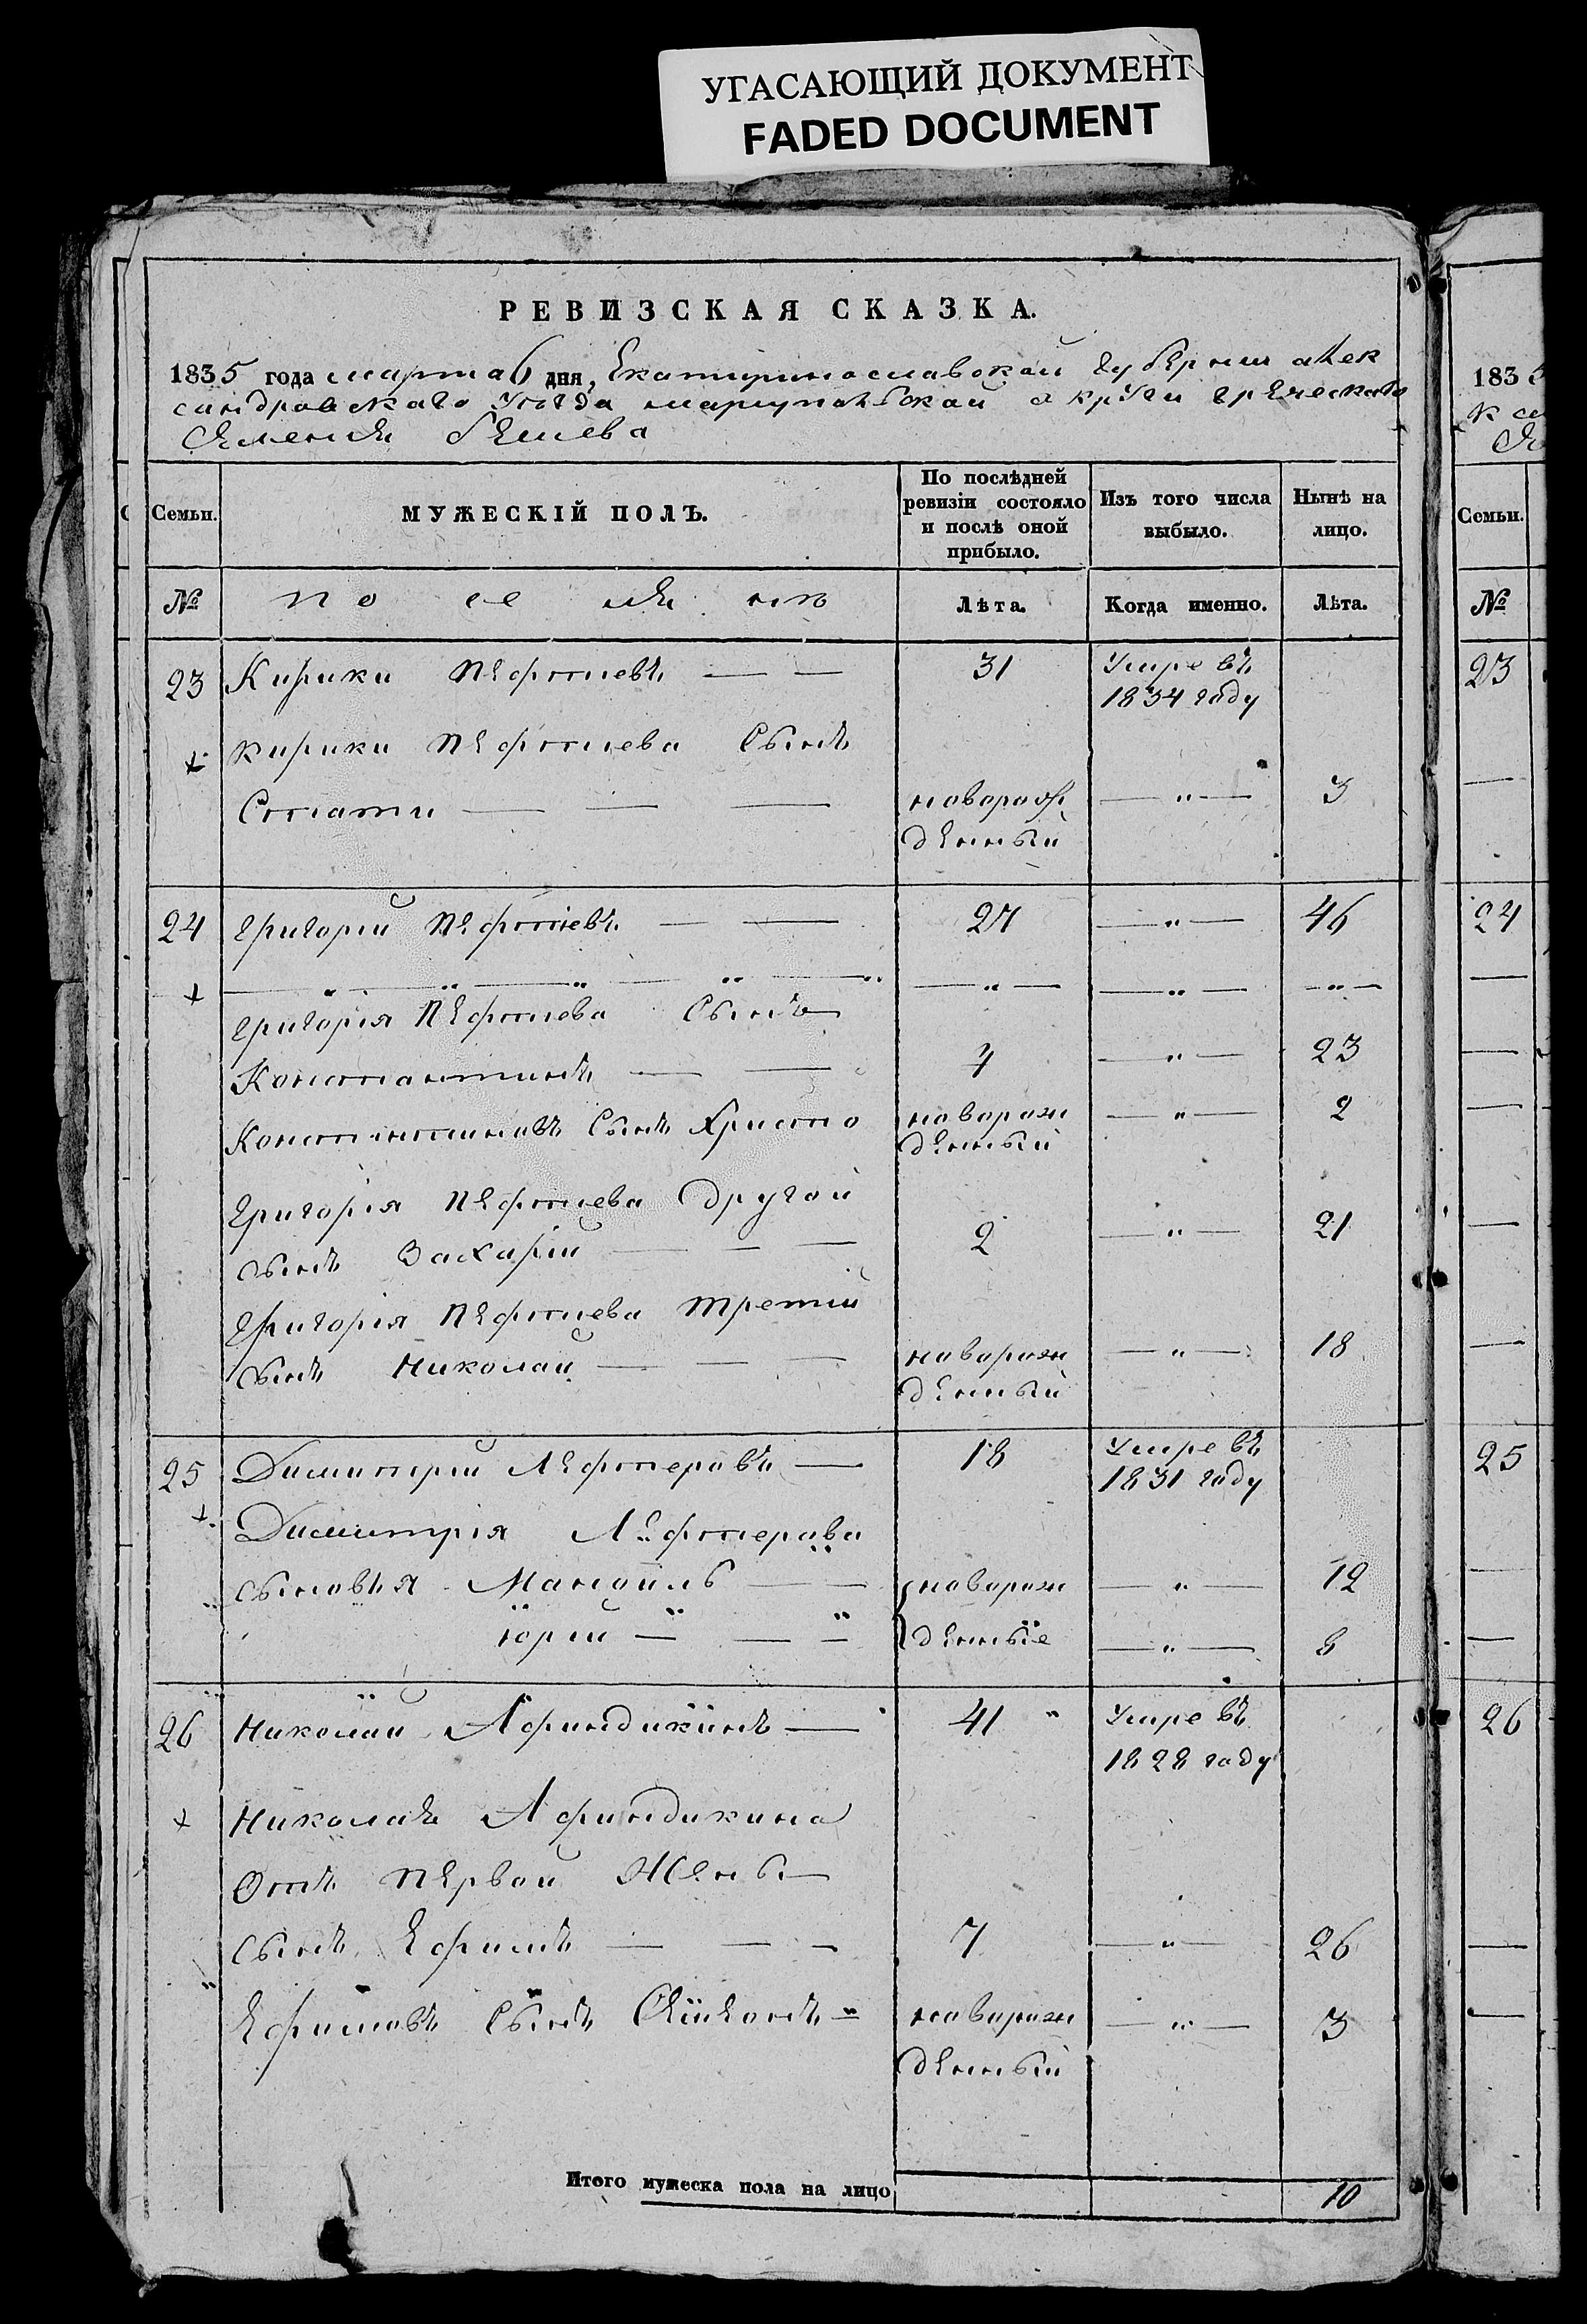 УГАСАЮЩИЙ ДОКУМЕНТ
FADED DOCUMENT
РЕВИЗСКАЯ СКАЗКА.
1835 года марта 6 дня, Екатириносլавской Губерни алек
сандровскаго уѣзда мариупольской округи греческаго
селенія бешева
Семьи. МУЖЕСКІЙ ПОЛЪ. По послѣдней ревизіи состояло и послѣ оной прибыло. Изъ того числа выбыло. Нынѣ на лицо.
№ Лѣта. Когда именно. Лѣта.
23 Кирики пефтиевъ 31 Умре въ
1834 году
кирики пефтиева Сынъ
Стати новорож 3
денный
24 григорій пефтіевъ 27 46
григорія пефтиева Сынъ
Константинъ 4 23
Константиновъ Сынъ Христо новорож 2
денный
григорія пефтиева Другой
сынъ Захарій 2 21
григорія пефтиева третій
сынъ Николай новорож 18
денный
25 Димитрий Лефтеровъ 18 Умре въ
1831 году
Димитрія Лефтерова
сыновья Маноиль новорож 12
юрий денные 8
26 Николай Афиндикинъ 41 Умре въ
1828 году
Николая Афиндикина
Отъ первой Жены
сынъ Ефимъ 7 26
Ефимовъ Сынъ новорож 3
денный
Итого мужеска пола на лицо 10
183
23
24
25
26
Семьи.
№